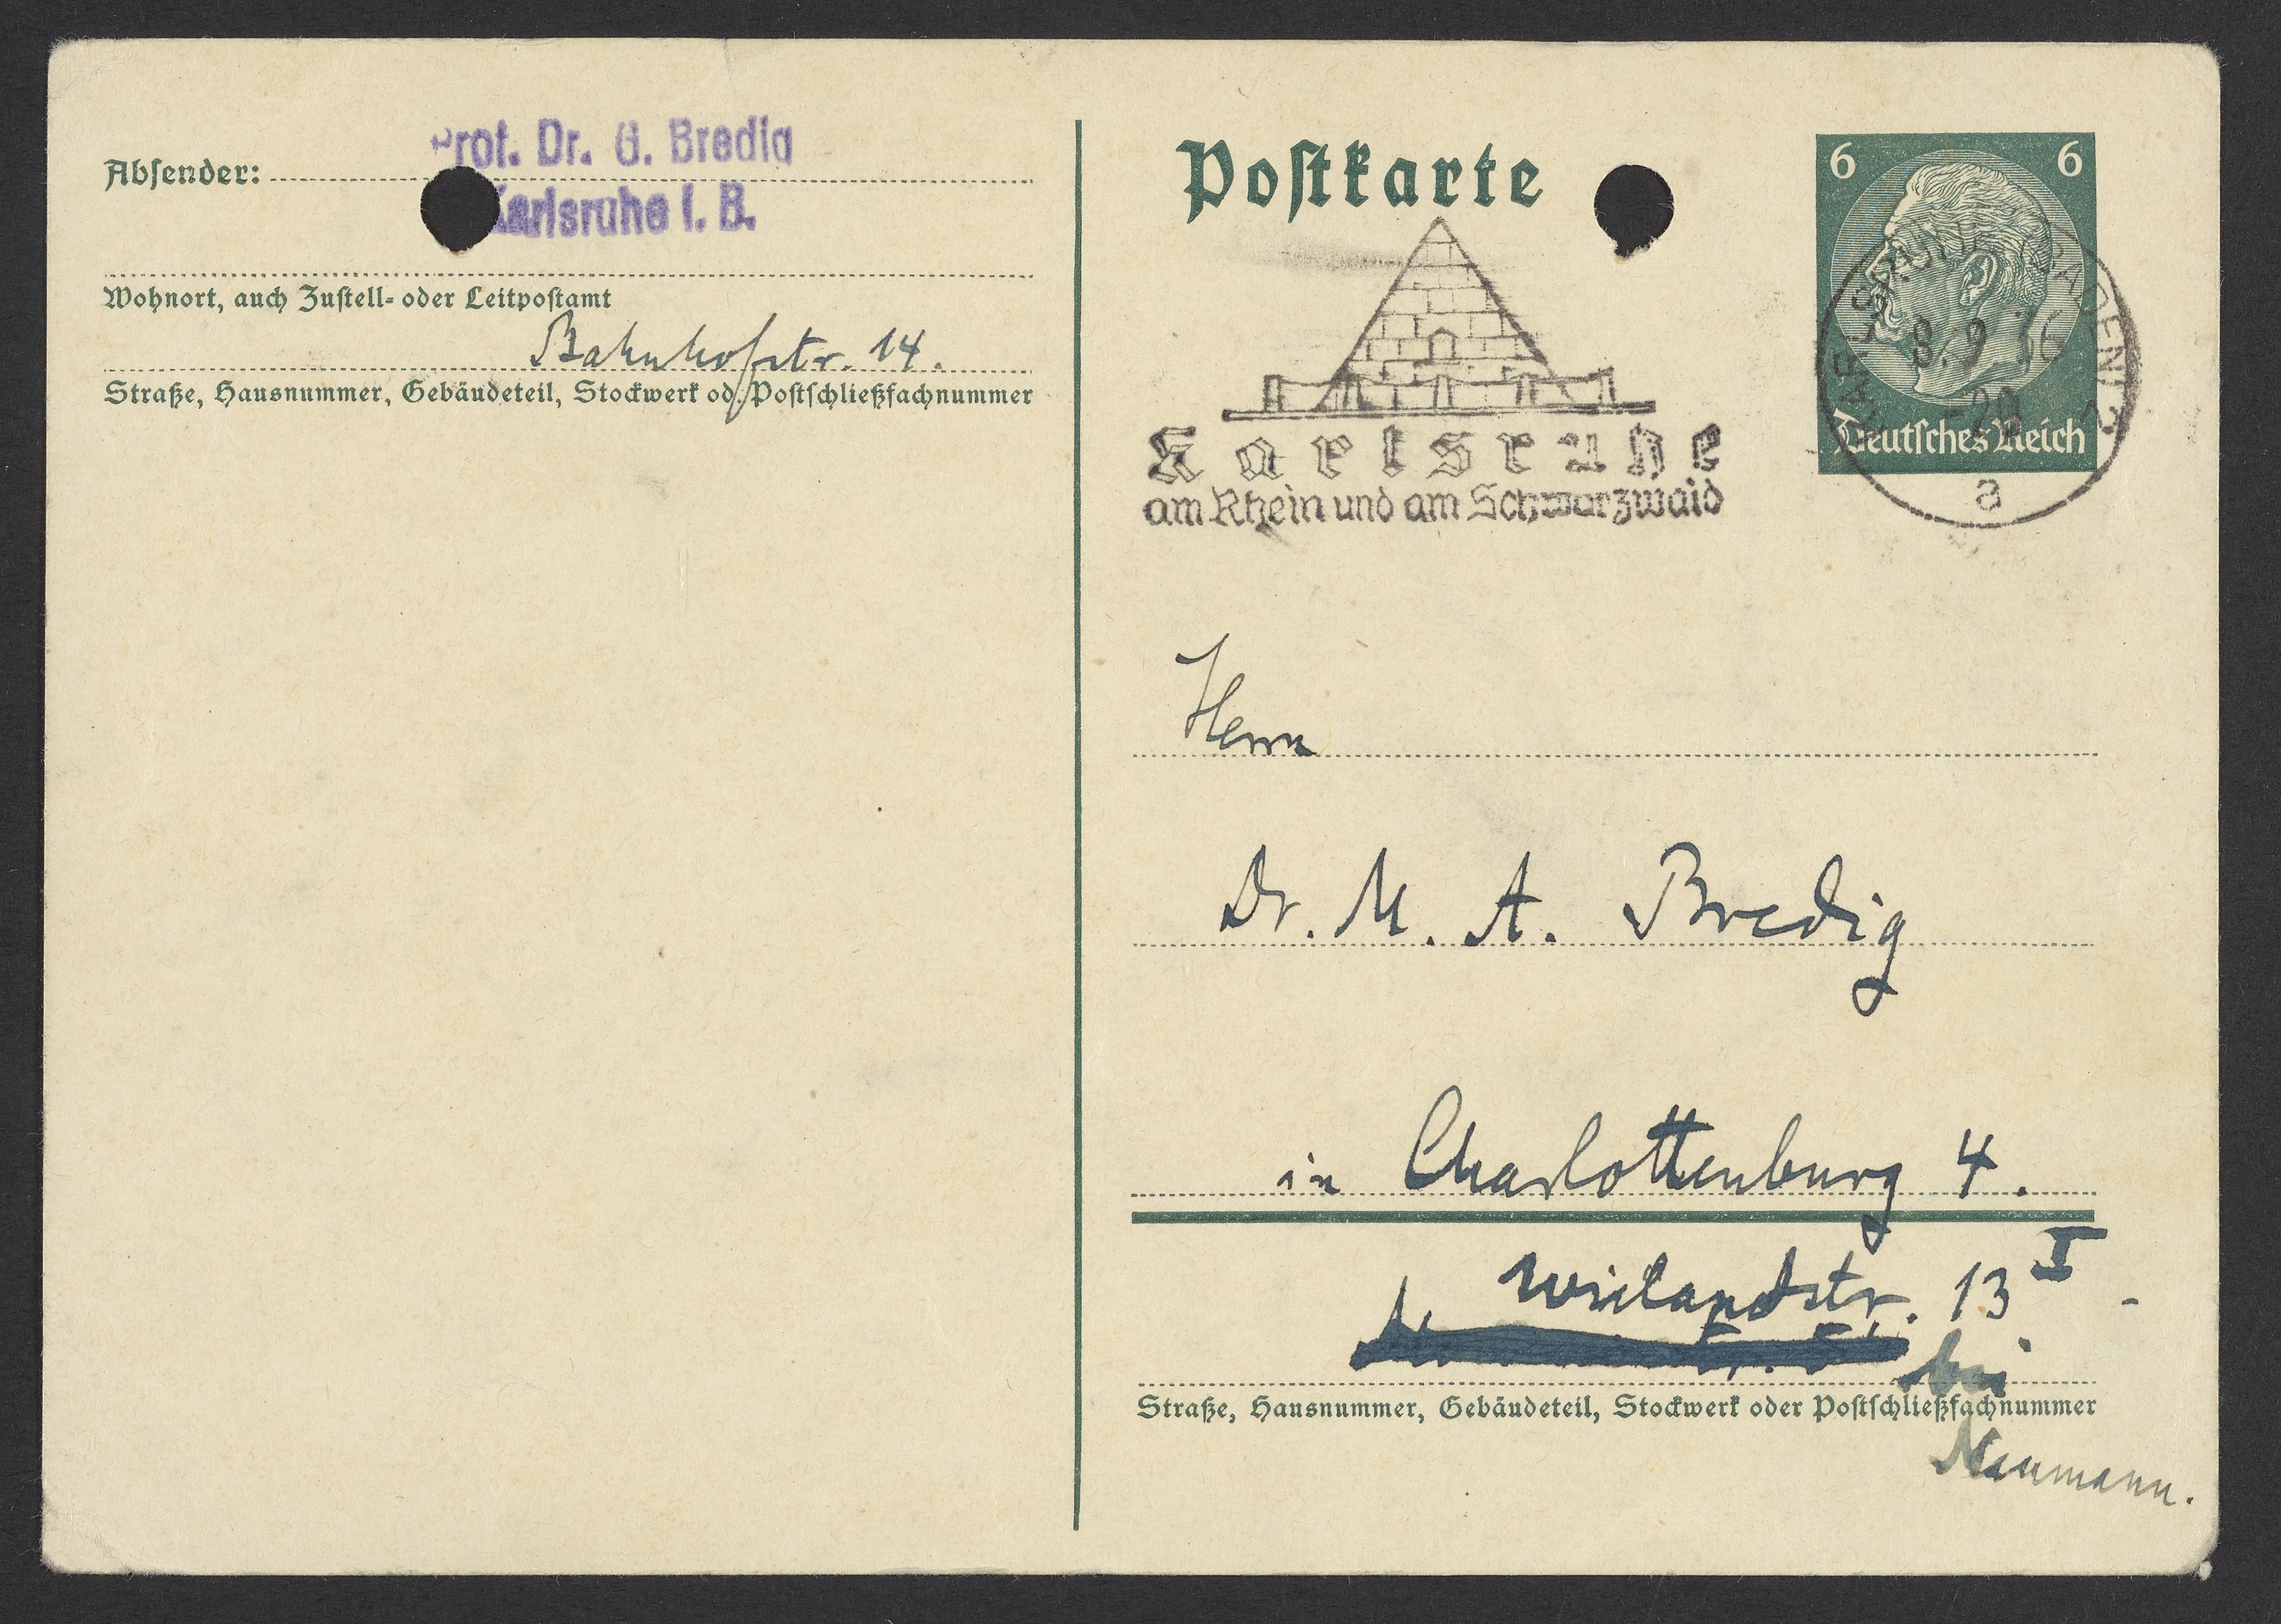 Prof. Dr. G. Bredig
Absender:
Karlsruhe i. B.
Wohnort, auch Zustell- oder Leitpostamt
Bahnhofstr. 14.
Straße, Hausnummer, Gebäudeteil, Stockwerk od. Postschließfachnummer
Postkarte
6 6
Deutsches Reich
KARLSRUHE (BADEN) 2
8.9.36
-20
a
Karlsruhe
am Rhein und am Schwarzwald
Herrn
Dr. M. A. Bredig
in Charlottenburg 4.
Wielandstr. 13 I
bei
Straße, Hausnummer, Gebäudeteil, Stockwerk oder Postschließfachnummer
Neumann.